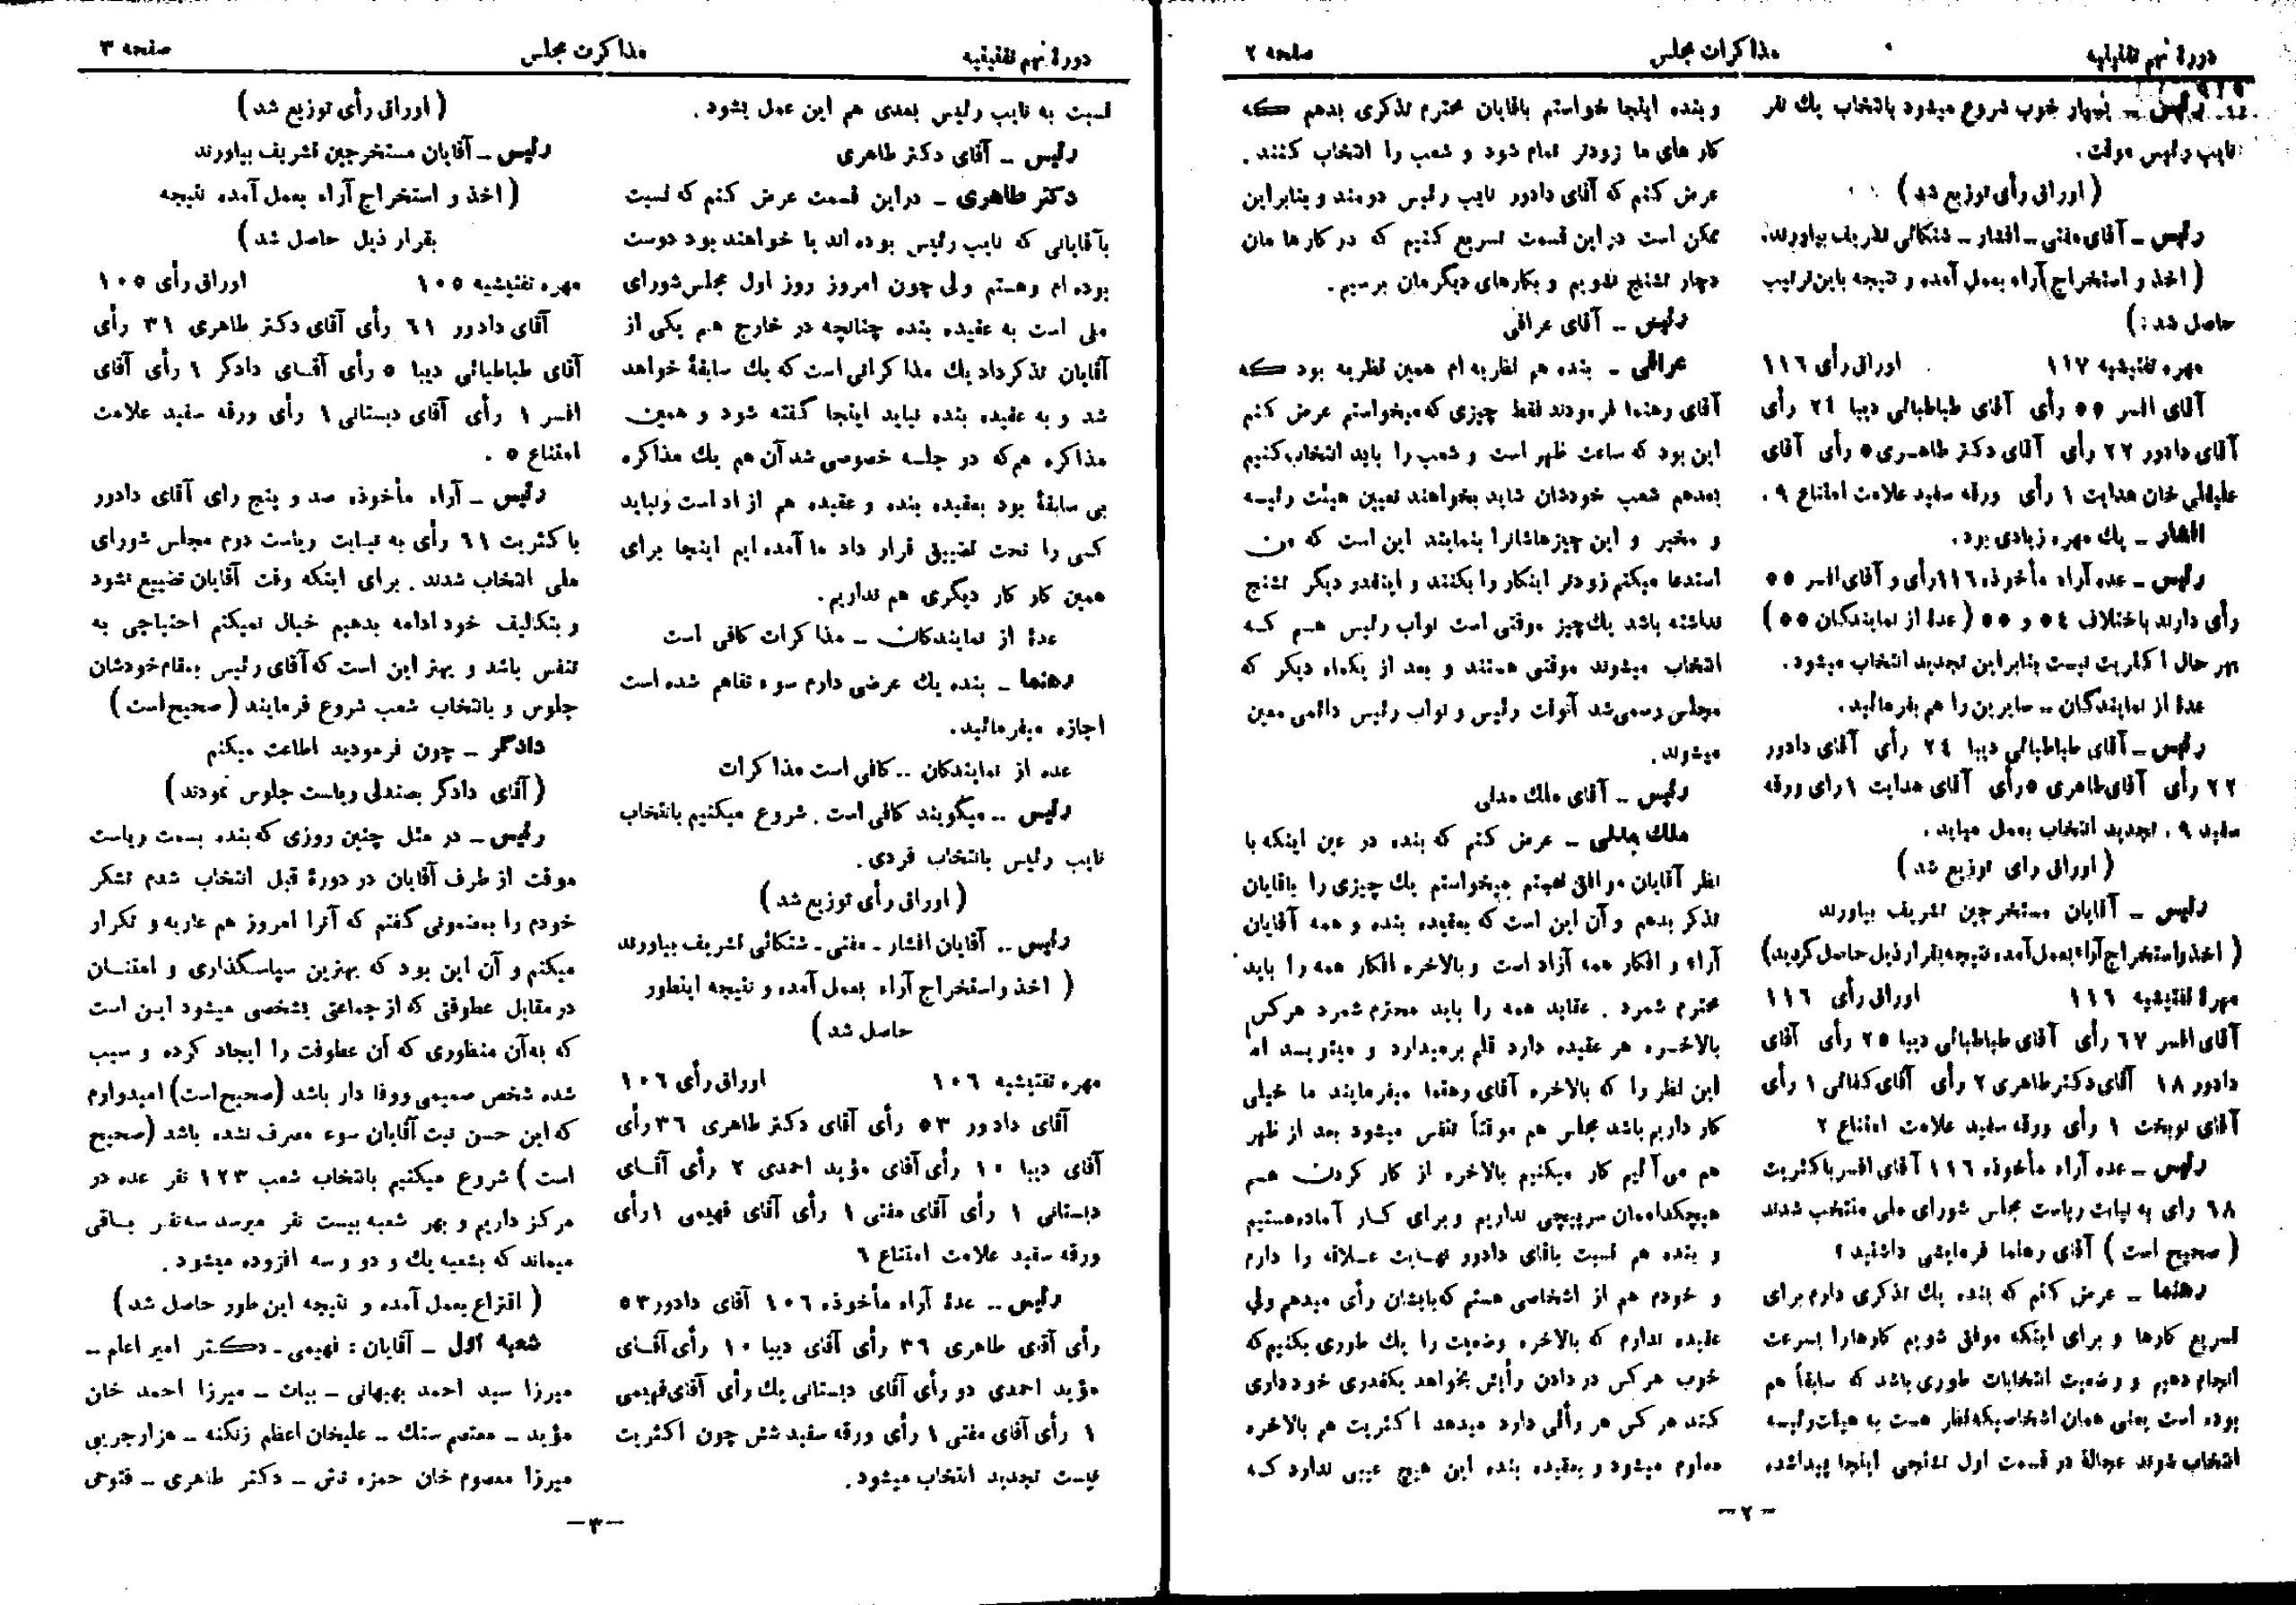 دورهٔ نهم تقنینیه
مذاکرات مجلس
صفحه ۲
رئیس ـ بسیار خوب شروع میشود بانتخاب یك نفر
نایب رئیس موقت.
( اوراق رأی توزیع شد )
رئیس ـ آقای مفتی ـ افشار ـ شنکائی تشریف بیاورند.
( اخذ و استخراج آراء بعمل آمده و نتیجه باین ترتیب
حاصل شد : )
مهره تفتیشیه ۱۱۷ اوراق رأی ۱۱۶
آقای افسر ۵۵ رأی آقای طباطبائی دیبا ۲٤ رأی
آقای دادور ۲۲ رأی آقای دکتر طاهـری ۵ رأی آقای
علیقلی خان هدایت ۱ رأی ورقه سفید علامت امتناع ۹.
افشار ـ یك مهره زیادی بود.
رئیس ـ عده آراء مأخوذه ۱۱۶ رأی و آقای افسر ۵۵
رأی دارند باختلاف ۵٤ و ۵۵ ( عدهٔ از نمایندگان ۵۵ )
بهر حال اکثریت نیست بنابراین تجدید انتخاب میشود.
عدهٔ از نمایندگان ـ سایرین را هم بفرمائید.
رئیس ـ آقای طباطبائی دیبا ۲٤ رأی آقای دادور
۲۲ رأی آقای طاهری ۵ رأی آقای هدایت ۱ رای ورقه
سفید ۹ . تجدید انتخاب بعمل میاید.
( اوراق رای توزیع شد )
رئیس ـ آقایان مستخرجین تشریف بیاورند
( اخذ و استخراج آراء بعمل آمده نتیجه بقرار ذیل حاصل گردید )
مهرهٔ تفتیشیه ۱۱۶ اوراق رأی ۱۱۶
آقای افسر ۶۷ رأی آقای طباطبائی دیبا ۲۵ رأی آقای
دادور ۱۸ آقای دکتر طاهری ۲ رأی آقای کفائی ۱ رأی
آقای نوبخت ۱ رأی ورقه سفید علامت امتناع ۲
رئیس ـ عده آراء مأخوذه ۱۱۶ آقای افسر با کثریت
۶۸ رای به نیابت ریاست مجلس شورای ملی منتخب شدند
( صحیح است ) آقای رهنما فرمایشی داشتید ؟
رهنما ـ عرض کنم که بنده یك تذکری دارم برای
تسریع کارها و برای اینکه موفق شویم کارها را بسرعت
انجام دهیم و وضعیت انتخابات طوری باشد که سابقاً هم
بوده است یعنی همان اشخاصیکه نظر هست به هیئت رئیسه
انتخاب شوند عجالهٔ در قسمت اول تشنجی اینجا پیدا شده
و بنده اینجا خواستم باقایان محترم تذکری بدهم که
کار های ما زودتر تمام شود و شعب را انتخاب کنند.
عرض کنم که آقای دادور نایب رئیس دومند و بنابراین
ممکن است در این قسمت تسریع کنیم که در کارها مان
دچار تشنج نشویم و بکارهای دیگرمان برسیم.
رئیس ـ آقای عراقی
عراقی ـ بنده هم نظریه ام همین نظریه بود که
آقای رهنما فرمودند فقط چیزی که میخواستم عرض کنم
این بود که ساعت ظهر است و شعب را باید انتخاب کنیم
بعد هم شعب خودشان شاید بخواهند تعیین هیئت رئیسه
و مخبر و این چیزهاشانرا بنمایند این است که من
استدعا میکنم زودتر اینکار را بکنند و اینقدر دیگر تشنج
نداشته باشد یك چیز موقتی است نواب رئیس هـم کـه
انتخاب میشوند موقتی هستند و بعد از یکماه دیگر که
مجلس رسمی شد آنوقت رئیس و نواب رئیس دائمی معین
میشوند.
رئیس ـ آقای ملك مدنی
ملك مدنی ـ عرض کنم که بنده در عین اینکه با
نظر آقایان موافق نیستم میخواستم یك چیزی را باقایان
تذکر بدهم و آن این است که بعقیده بنده و همه آقایان
آراء و افکار همه آزاد است و بالاخره افکار همه را باید
محترم شمرد . عقاید همه را باید محترم شمرد هرکس
بالاخـره هر عقیده دارد قلم برمیدارد و مینویسد اما
این نظر را که بالاخره آقای رهنما میفرمایند ما خیلی
کار داریم باشد مجلس هم موقتاً تنفس میشود بعد از ظهر
هم می آئیم کار میکنیم بالاخره از کار کردن هم
هیچکداممان سرپیچی نداریم و برای کـار آماده هستیم
و بنده هم نسبت باقای دادور نهـایت عـلاقه را دارم
و خودم هم از اشخاصی هستم که بایشان رأی میدهم ولی
عقیده ندارم که بالاخره وضعیت را یك طوری بکنیم که
خوب هرکس در دادن رأیش بخواهد یکقدری خودداری
کند هر کس هر رأئی دارد میدهد اکثریت هم بالاخره
معلوم میشود و بعقیده بنده این هیچ عیبی ندارد کـه
ـ ۲ ـ
دورهٔ نهم تقنینیه
مذاکرت مجلس
صفحه ۳
نسبت به نایب رئیس بعدی هم این عمل بشود.
رئیس ـ آقای دکتر طاهری
دکتر طاهری ـ در این قسمت عرض کنم که نسبت
بآقایانی که نایب رئیس بوده اند یا خواهند بود دوست
بوده ام و هستم ولی چون امروز روز اول مجلس شورای
ملی است به عقیده بنده چنانچه در خارج هم یکی از
آقایان تذکر داد یك مذاکراتی است که یك سابقهٔ خواهد
شد و به عقیده بنده نباید اینجا گفته شود و همین
مذاکره هم که در جلسه خصوصی شد آن هم یك مذاکره
بی سابقهٔ بود بعقیده بنده و عقیده هم ازاد است و نباید
کسی را تحت تضییق قرار داد ما آمده ایم اینجا برای
همین کار کار دیگری هم نداریم.
عدهٔ از نمایندگان ـ مذاکرات کافی است
رهنما ـ بنده یك عرضی دارم سوء تفاهم شده است
اجازه میفرمائید.
عده از نمایندگان ـ کافی است مذاکرات
رئیس ـ میگویند کافی است. شروع میکنیم بانتخاب
نایب رئیس بانتخاب فردی.
( اوراق رأی توزیع شد )
رئیس ـ آقایان افشار ـ مفتی ـ شنکائی تشریف بیاورند
( اخذ و استخراج آراء بعمل آمده و نتیجه اینطور
حاصل شد )
مهره تفتیشیه ۱۰۶ اوراق رأی ۱۰۶
آقای دادور ۵۳ رأی آقای دکتر طاهری ۳۶ رأی
آقای دیبا ۱۰ رأی آقای مؤید احمدی ۲ رأی آقـای
دبستانی ۱ رأی آقای مفتی ۱ رأی آقای فهیمی ۱ رأی
ورقه سفید علامت امتناع ۶
رئیس ـ عدهٔ آراء مأخوذه ۱۰۶ آقای دادور ۵۳
رأی آقای طاهری ۳۶ رأی آقای دیبا ۱۰ رأی آقـای
مؤید احمدی دو رأی آقای دبستانی یك رأی آقای فهیمی
۱ رأی آقای مفتی ۱ رأی ورقه سفید شش چون اکثریت
نیست تجدید انتخاب میشود.
( اوراق رأی توزیع شد )
رئیس ـ آقایان مستخرجین تشریف بیاورند
( اخذ و استخراج آراء بعمل آمده نتیجه
بقرار ذیل حاصل شد )
مهره تفتیشیه ۱۰۵ اوراق رأی ۱۰۵
آقای دادور ۶۱ رأی آقای دکتر طاهری ۳۱ رأی
آقای طباطبائی دیبا ۵ رأی آقـای دادگر ۱ رأی آقای
افسر ۱ رأی آقای دبستانی ۱ رأی ورقه سفید علامت
امتناع ۵ .
رئیس ـ آراء مأخوذه صد و پنج رای آقای دادور
با کثریت ۶۱ رأی به نیـابت ریاست دوم مجلس شورای
ملی انتخاب شدند. برای اینکه وقت آقایان تضییع نشود
و بتکالیف خود ادامه بدهیم خیال نمیکنم احتیاجی به
تنفس باشد و بهتر این است که آقای رئیس بمقام خودشان
جلوس و بانتخاب شعب شروع فرمایند ( صحیح است )
دادگر ـ چون فرمودید اطاعت میکنم
( آقای دادگر بصندلی ریاست جلوس نمودند )
رئیس ـ در مثل چنین روزی که بنده بسمت ریاست
موقت از طرف آقایان در دورهٔ قبل انتخاب شدم تشکر
خودم را بمضمونی گفتم که آنرا امروز هم عاریه و تکرار
میکنم و آن این بود که بهترین سپاسگذاری و امتنـان
در مقابل عطوفتی که از جماعتی بشخصی میشود این است
که به آن منظوری که آن عطوفت را ایجاد کرده و سبب
شده شخص صمیمی و وفا دار باشد (صحیح است) امیدوارم
که این حسن نیت آقایان سوء مصرف نشده باشد (صحیح
است ) شروع میکنیم بانتخاب شعب ۱۲۳ نفر عده در
مرکز داریم و بهر شعبه بیست نفر میرسد سه نفـر بـاقی
میماند که بشعبه یك و دو و سه افزوده میشود.
( اقتراع بعمل آمده و نتیجه این طور حاصل شد )
شعبه اول ـ آقایان : فهیمی ـ دکتر امیر اعلم ـ
میرزا سید احمد بهبهانی ـ بیات ـ میرزا احمد خان
مؤید ـ معتصم سنك ـ علیخان اعظم زنگنه ـ هزارجریبی
میرزا معصوم خان حمزه تاش ـ دکتر طاهری ـ فتوحی
ـ ۳ ـ